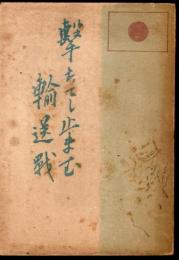 撃ちてし止まむ
輸送戦